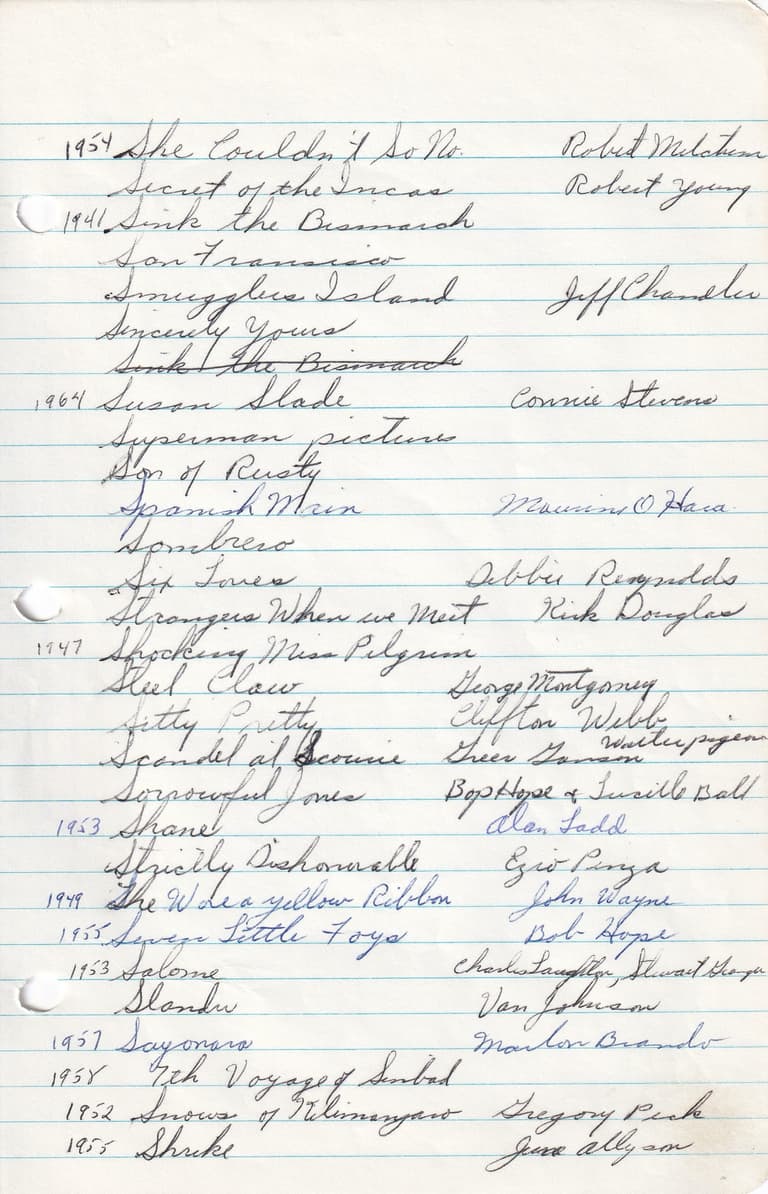 1954 She Couldn't So No. Robert Mitchum
Secret of the Incas Robert Young
1941 Sink the Bismarck
San Fransisco
Smugglers Island Jeff Chandler
Sincerely Yours
Sink the Bismarck
1964 Susan Slade Connie Stevens
Superman pictures
Son of Rusty
Spanish Main Maurine O Hara
Sombrero
Six Loves Debbie Reynolds
Strangers When we Meet Kirk Douglas
1947 Shocking Miss Pilgrim
Steel Claw George Montgomery
Sitty Pretty Cliffton Webb
Scandel at Scourie Greer Garson Walter pigeon
Sorrowful Jones Bop Hope & Lucille Ball
1953 Shane Alan Ladd
Strictly Dishonorable Ezio Pinza
1949 She Wore a yellow Ribbon John Wayne
1955 Seven Little Foys Bob Hope
1953 Salome Charles Laughton, Stewart Granger
Slander Van Johnson
1957 Sayonara Marlon Brando
1958 7th Voyage of Sinbad
1952 Snows of Kilimanjaro Gregory Peck
1955 Shrike June allyson